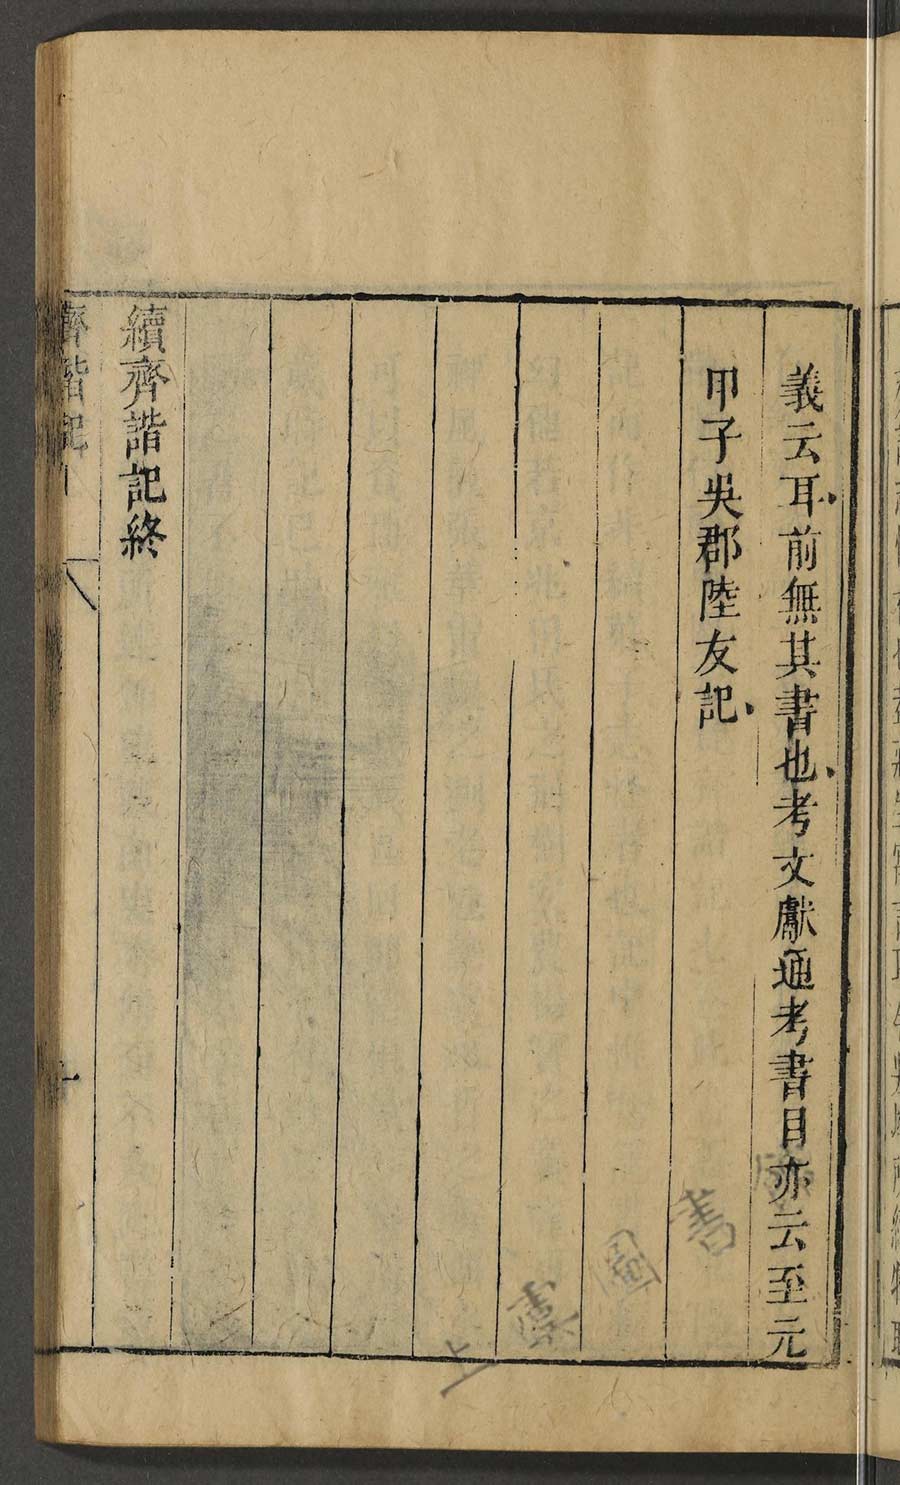 義云耳前無其書也考文獻通考書目亦云至元
甲子吳郡陸友記
續齊諧記終
齊諧記
十
上虞圖書